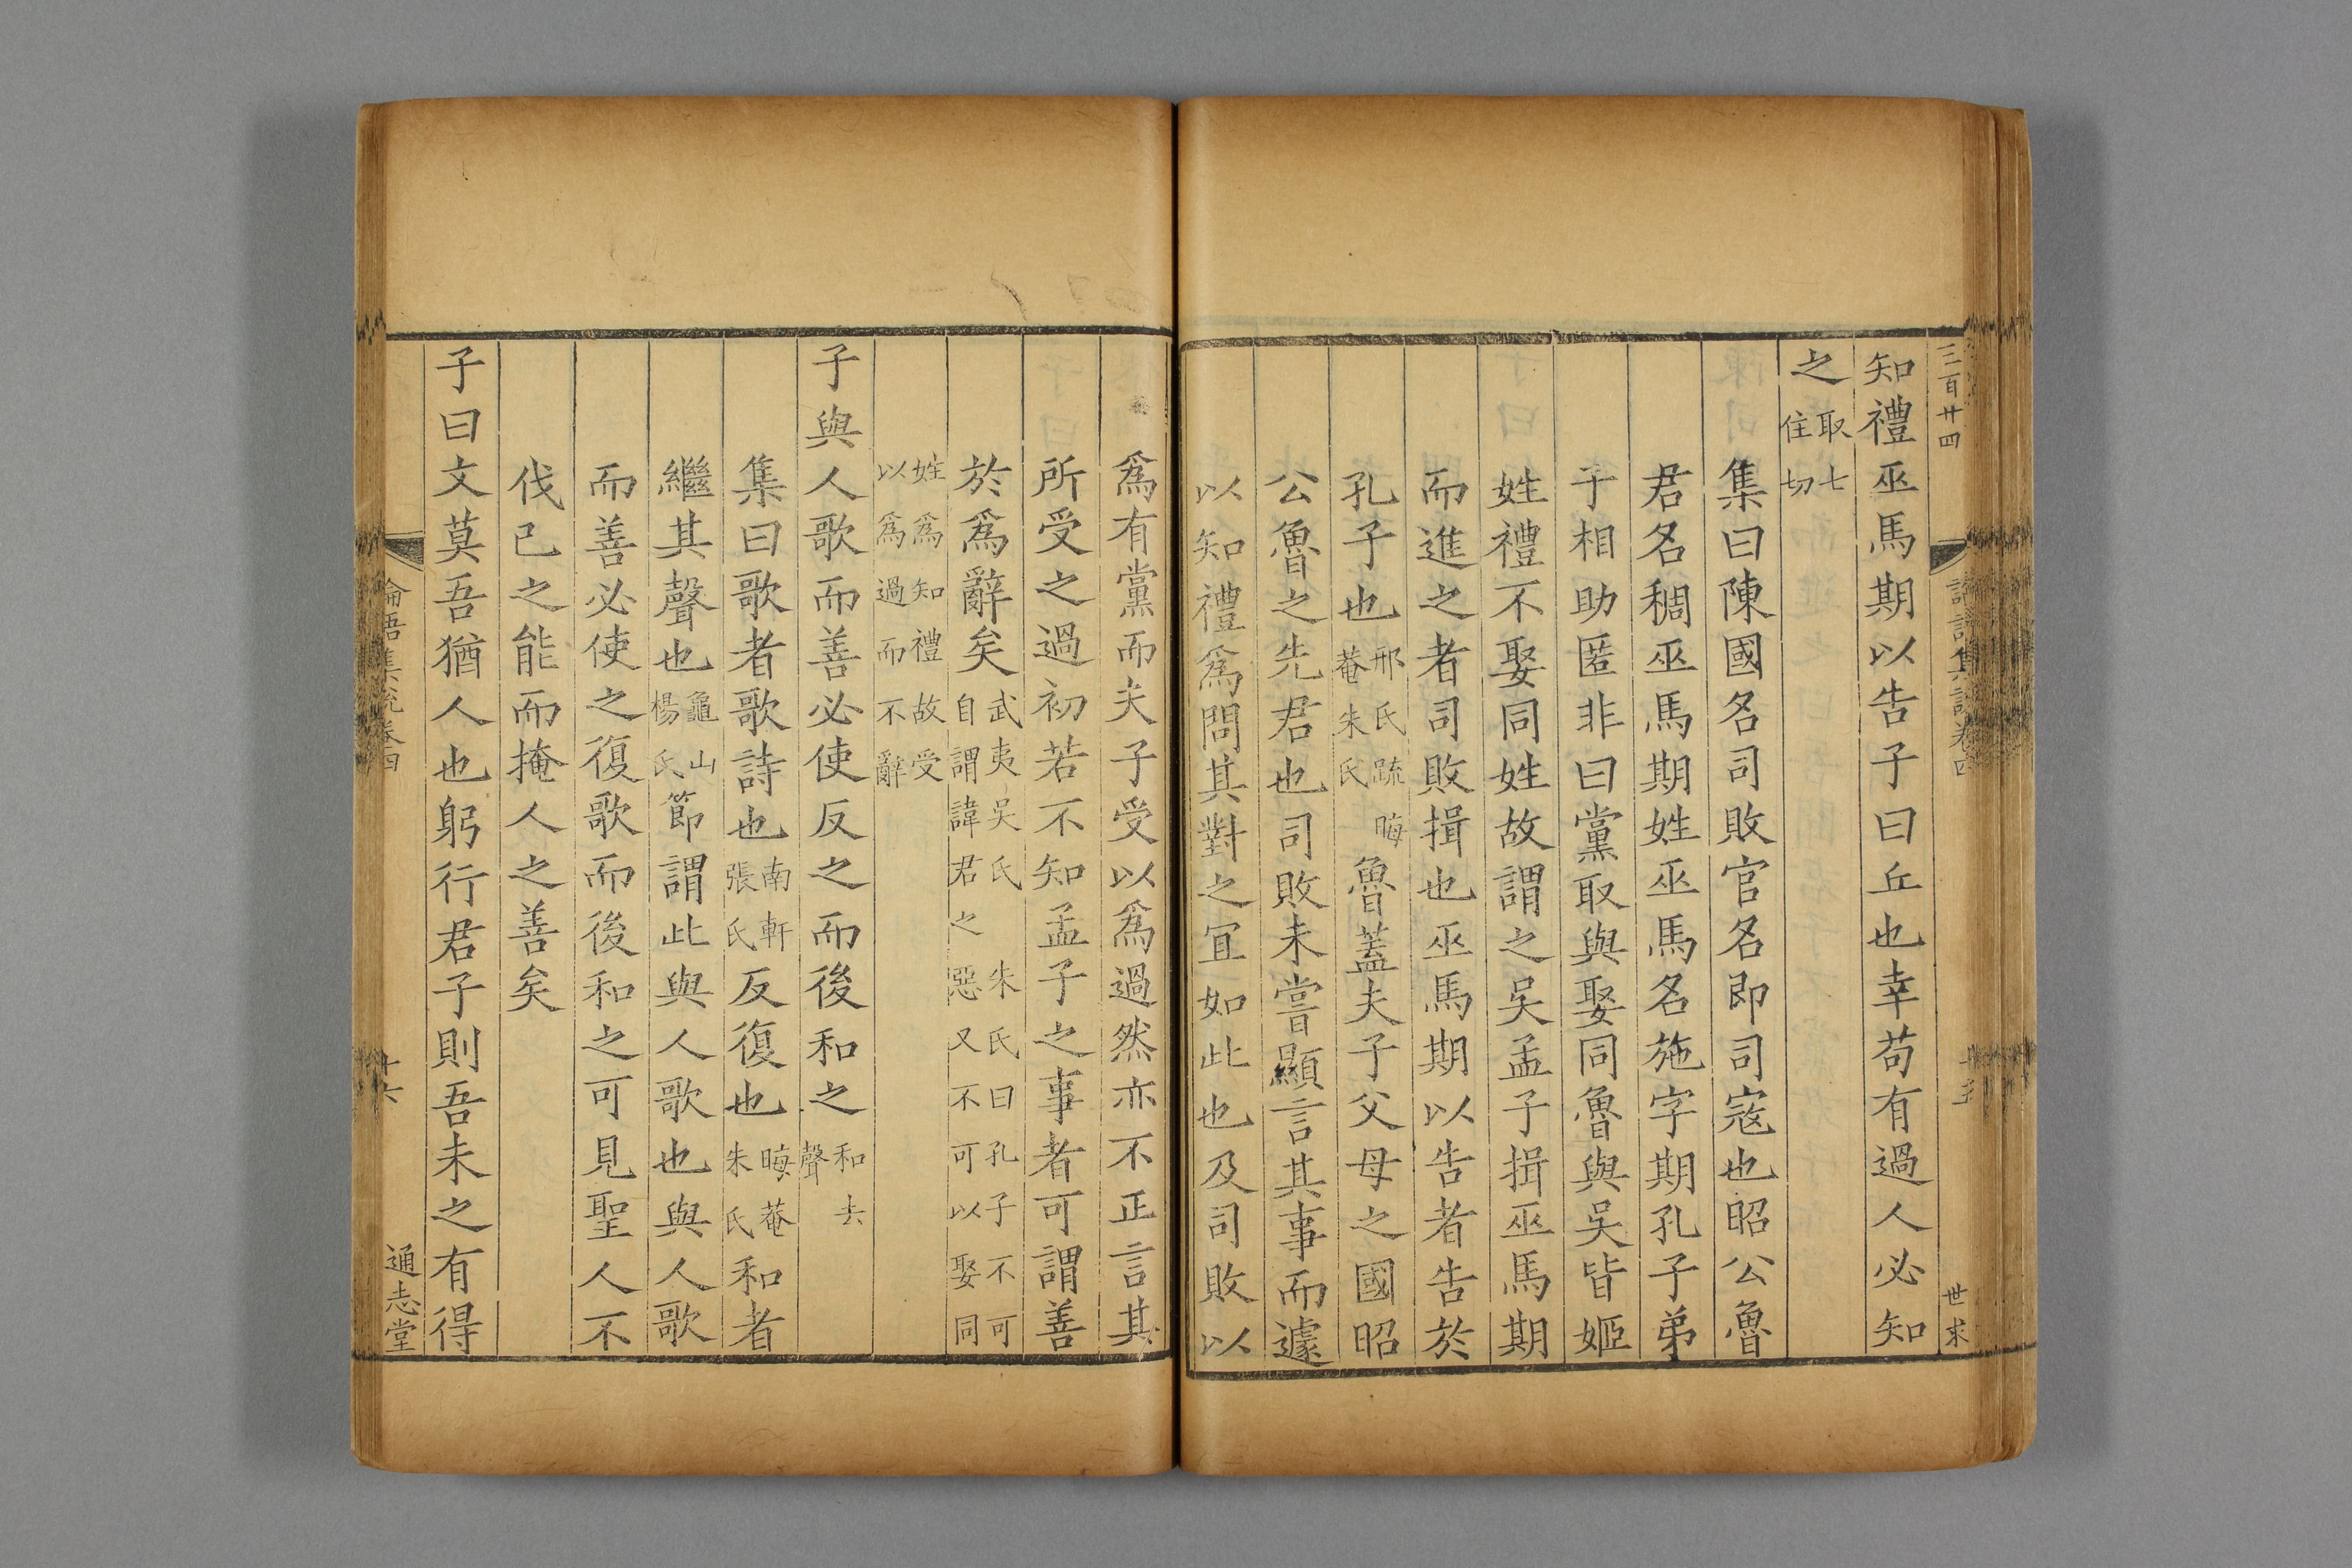 三百廿四
世求
知禮巫馬期以告子曰丘也幸苟有過人必知
之取七住切
集曰陳國名司敗官名即司寇也昭公魯
君名稠巫馬期姓巫馬名施字期孔子弟
子相助匿非曰黨取與娶同魯與吳皆姬
姓禮不娶同姓故謂之吳孟子揖巫馬期
而進之者司敗揖也巫馬期以告者告於
孔子也邢氏疏晦菴朱氏魯蓋夫子父母之國昭
公魯之先君也司敗未嘗顯言其事而遽
以知禮爲問其對之宜如此也及司敗以
爲有黨而夫子受以爲過然亦不正言其
所受之過初若不知孟子之事者可謂善
於爲辭矣武夷吳氏朱氏曰孔子不可自謂諱君之惡又不可以娶同
姓爲知禮故受以爲過而不辭
子與人歌而善必使反之而後和之和去聲
集曰歌者歌詩也南軒張氏反復也晦菴朱氏和者
繼其聲也龜山楊氏節謂此與人歌也與人歌
而善必使之復歌而後和之可見聖人不
伐己之能而掩人之善矣
子曰文莫吾猶人也躬行君子則吾未之有得
論語集說卷四
十六
通志堂